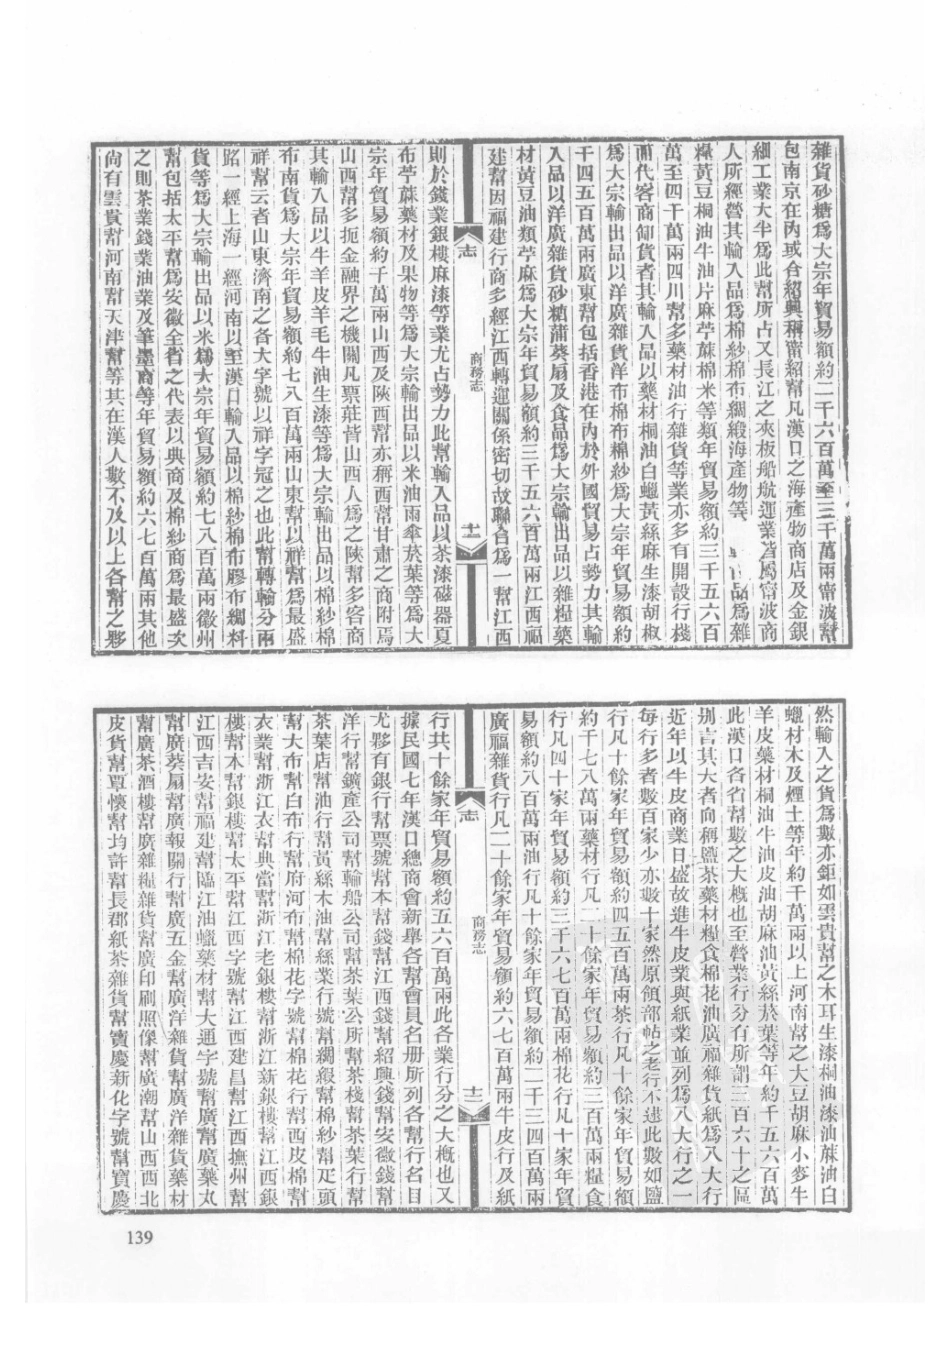 雜貨砂糖爲大宗年貿易額約二千六百萬至三千萬兩甯波幫
包南京在內或合紹興稱甯紹幫凡漢口之海產物商店及金銀
細工業大半爲此幫所占又長江之夾板船航運業皆屬甯波商
人所經營其輸入品爲棉紗棉布綢緞海產物等 品爲雜
糧黃豆桐油牛油片麻苧蔴棉米等類年貿易額約三千五六百
萬至四千萬兩四川幫多藥材油行雜貨等業亦多有開設行棧
而代客商卸貨者其輸入品以藥材桐油白蠟黃絲麻生漆胡椒
爲大宗輸出品以洋廣雜貨洋布棉布棉紗爲大宗年貿易額約
千四五百萬兩廣東幫包括香港在內於外國貿易占勢力其輸
入品以洋廣雜貨砂糖蒲葵扇及食品爲大宗輸出品以雜糧藥
材黃豆油類苧麻爲大宗年貿易額約三千五六百萬兩江西福
建幫因福建行商多經江西轉運關係密切故聯合爲一幫江西
志
商務志
十二
則於錢業銀樓麻漆等業尤占勢力此幫輸入品以茶漆磁器夏
布苧蔴藥材及果物等爲大宗輸出品以米油雨傘菸葉等爲大
宗年貿易額約千萬兩山西及陝西幫亦稱西幫甘肅之商附焉
山西幫多扼金融界之機關凡票莊皆山西人爲之陝幫多客商
其輸入品以牛羊皮羊毛牛油生漆等爲大宗輸出品以棉紗棉
布南貨爲大宗年貿易額約七八百萬兩山東幫以祥幫爲最盛
祥幫云者山東濟南之各大字號以祥字冠之也此幫轉輸分兩
路一經上海一經河南以至漢口輸入品以棉紗棉布膠布綢料
貨等爲大宗輸出品以米爲大宗年貿易額約七八百萬兩徽州
幫包括太平幫爲安徽全省之代表以典商及棉紗商爲最盛次
之則茶業錢業油業及筆墨商等年貿易額約六七百萬兩其他
尚有雲貴幫河南幫天津幫等其在漢人數不及以上各幫之夥
然輸入之貨爲數亦鉅如雲貴幫之木耳生漆桐油漆油蔴油白
蠟材木及煙土等年約千萬兩以上河南幫之大豆胡麻小麥牛
羊皮藥材桐油牛油皮油胡麻油黃絲菸葉等年約千五六百萬
此漢口各省幫數之大槪也至營業行分有所謂三百六十之區
別言其大者向稱鹽茶藥材糧食棉花油廣福雜貨紙爲八大行
近年以牛皮商業日盛故進牛皮業與紙業並列爲八大行之一
每行多者數百家少亦數十家然原領部帖之老行不逮此數如鹽
行凡十餘家年貿易額約四五百萬兩茶行凡十餘家年貿易額
約千七八萬兩藥材行凡二十餘家年貿易額約三百萬兩糧食
行凡四十家年貿易額約三千六七百萬兩棉花行凡十家年貿
易額約八百萬兩油行凡十餘家年貿易額約二千三四百萬兩
廣福雜貨行凡二十餘家年貿易額約六七百萬兩牛皮行及紙
志
商務志
十二
行共十餘家年貿易額約五六百萬兩此各業行分之大槪也又
據民國七年漢口總商會新舉各幫會員名册所列各幫行名目
尤夥有銀行幫票號幫本幫錢幫江西錢幫紹興錢幫安徽錢幫
洋行幫鑛產公司幫輪船公司幫茶葉公所幫茶棧幫茶葉行幫
茶葉店幫油行幫黃絲木油幫絲業行號幫綢緞幫棉紗幫疋頭
幫大布幫白布行幫府河布幫棉花字號幫棉花行幫西皮棉幫
衣業幫浙江衣幫典當幫浙江老銀樓幫浙江新銀樓幫江西銀
樓幫本幫銀樓幫太平幫江西字號幫江西建昌幫江西撫州幫
江西吉安幫福建幫臨江油蠟藥材幫大通字號幫廣幫廣藥丸
幫廣葵扇幫廣報關行幫廣五金幫廣洋雜貨幫廣洋雜貨藥材
幫廣茶酒樓幫廣雜糧雜貨幫廣印刷照像幫廣潮幫山西西北
皮貨幫覃懷幫均許幫長郡紙茶雜貨幫寶慶新化字號幫寶慶
139